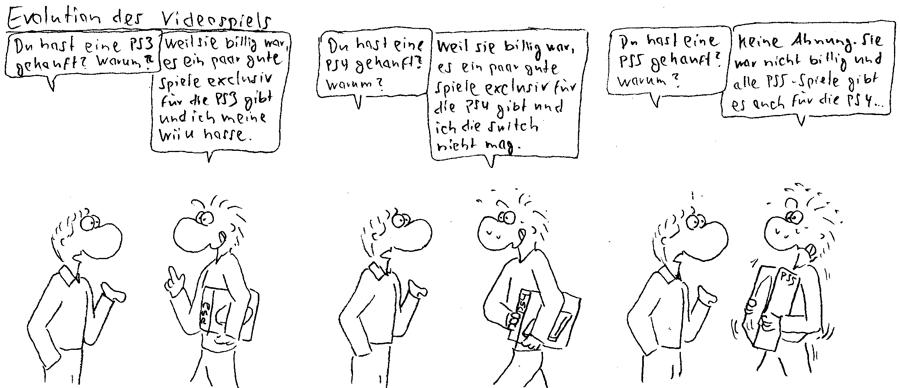 Evolution des Videospiels
Du hast eine PS3
gekauft? Warum?
Weil sie billig war,
es ein paar gute
Spiele exclusiv
für die PS3 gibt
und ich meine
Wii U hasse.
PS3
Du hast eine
PS4 gekauft?
Warum?
Weil sie billig war,
es ein paar gute
Spiele exclusiv für
die PS4 gibt und
ich die Switch
nicht mag.
PS4
Du hast eine
PS5 gekauft?
Warum?
Keine Ahnung. Sie
war nicht billig und
alle PS5-Spiele gibt
es auch für die PS4...
PS5